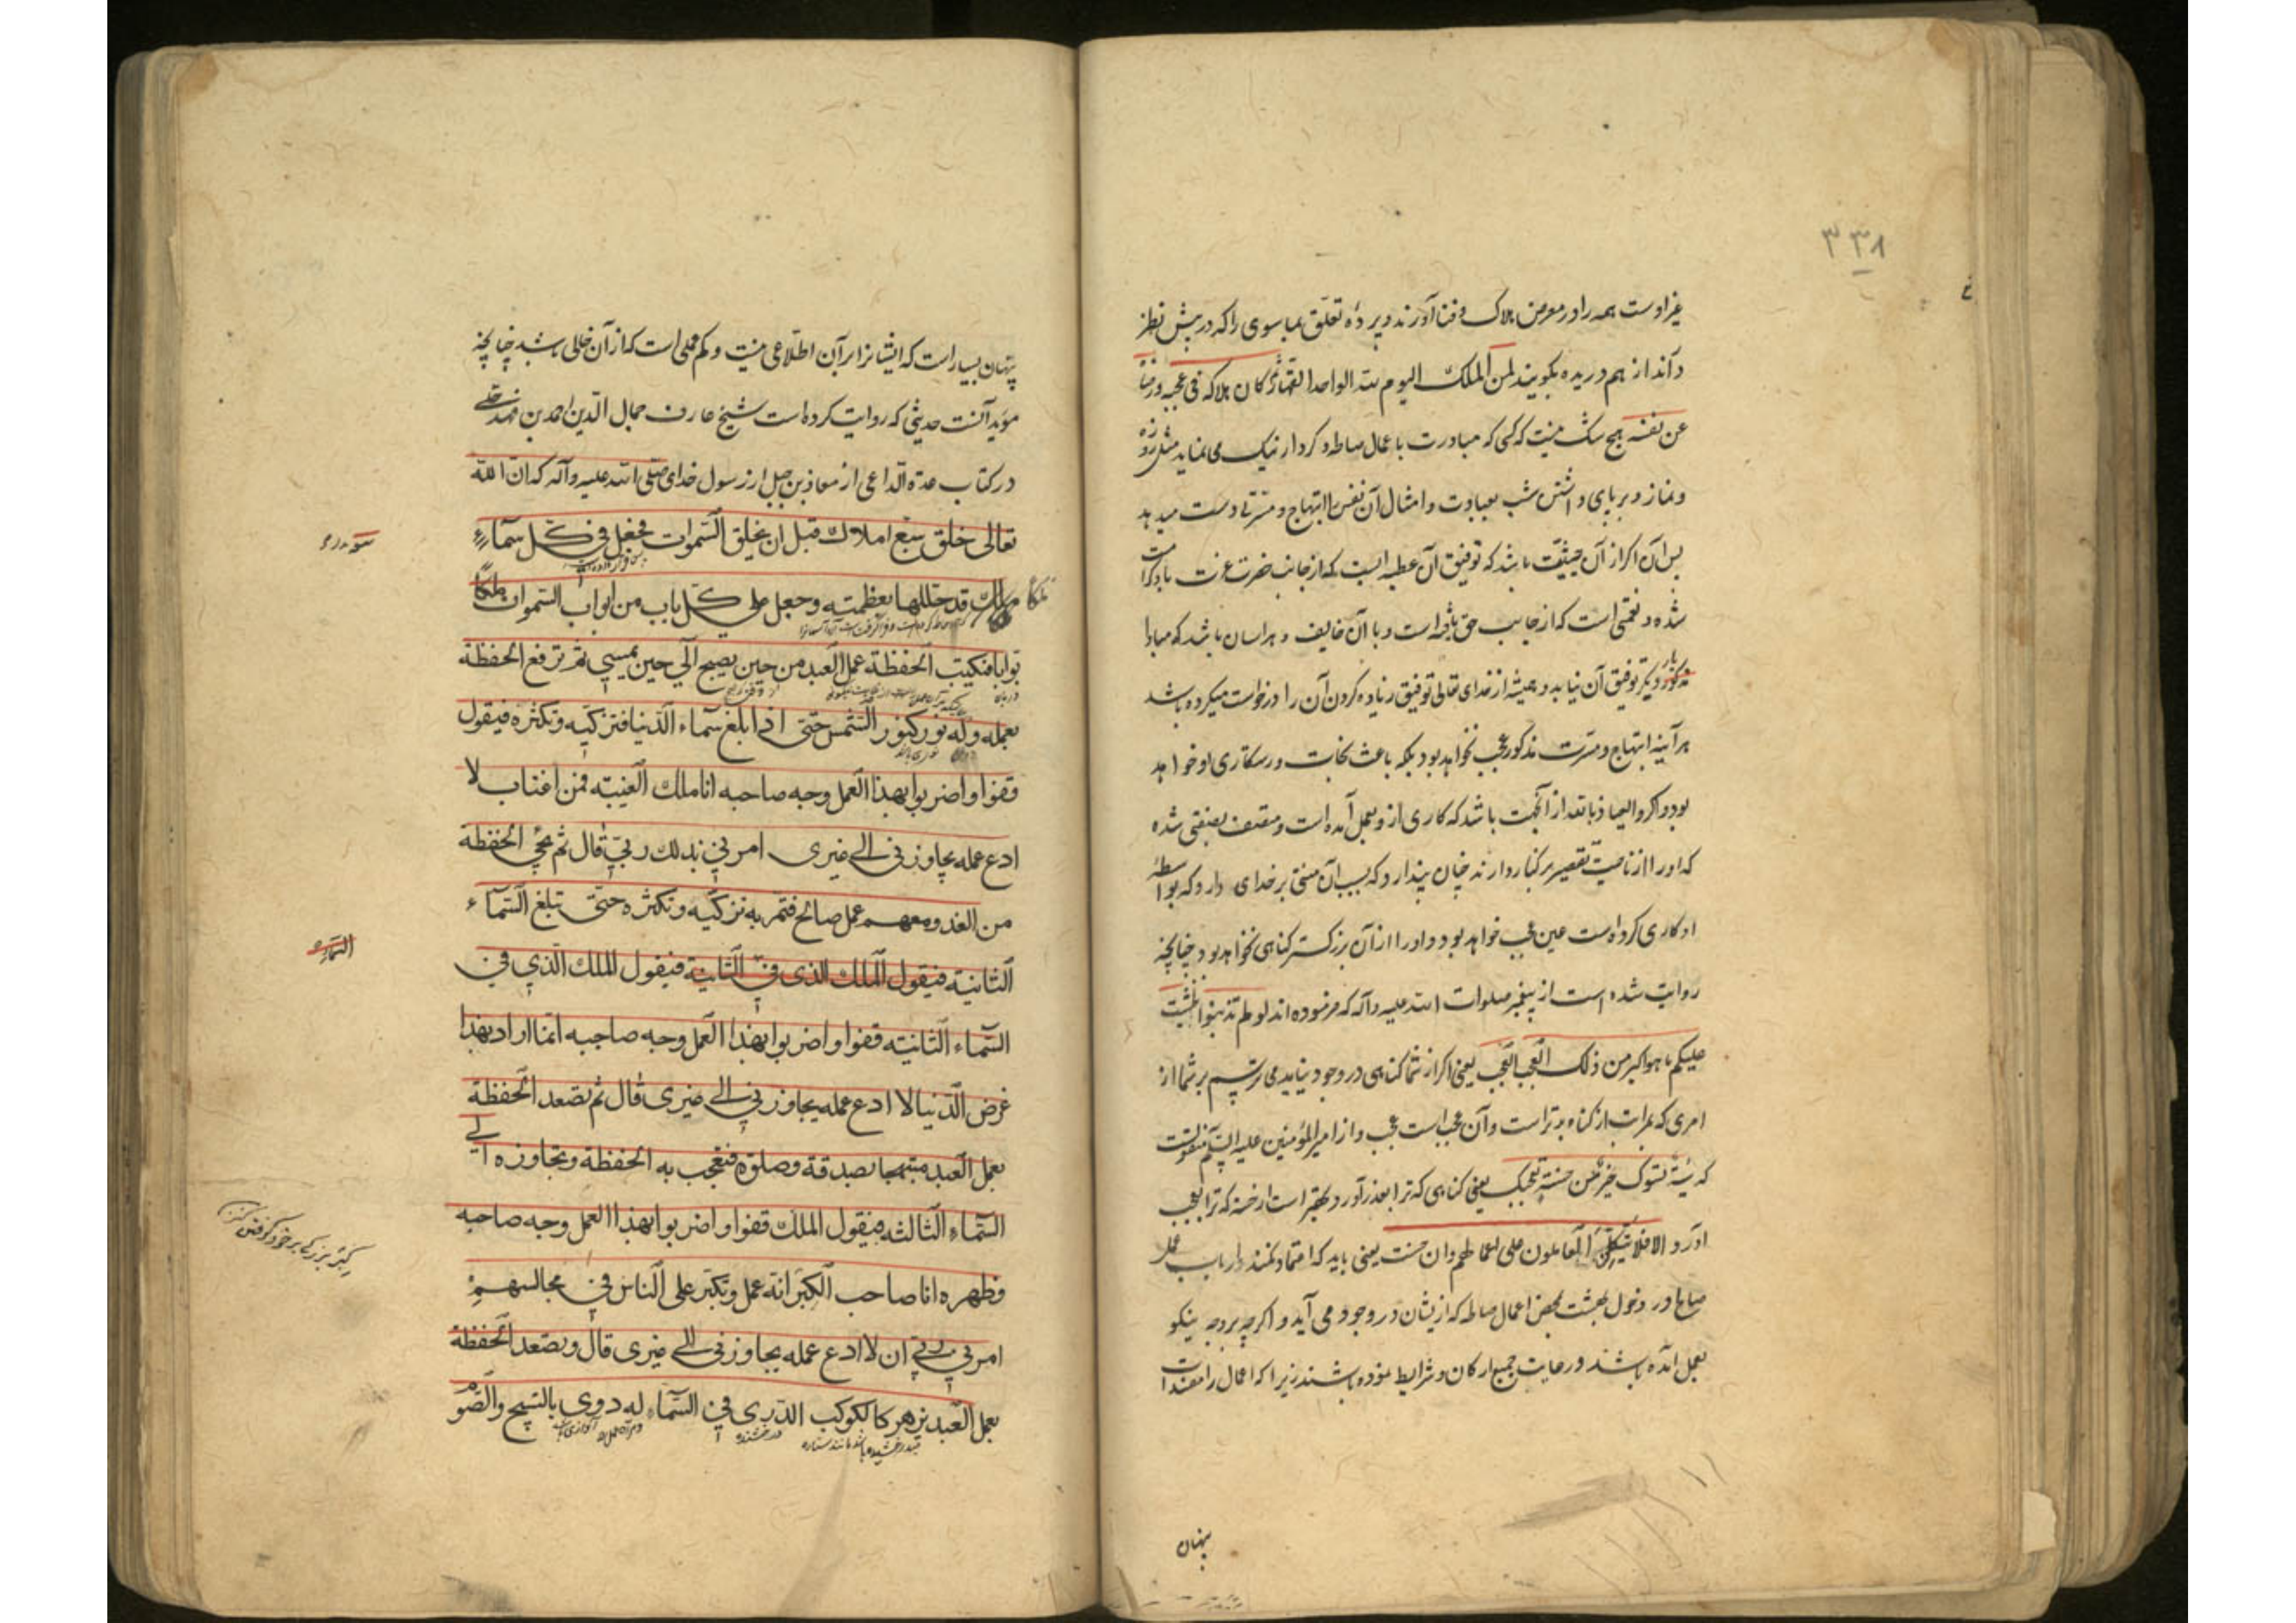 ۳۳۸
غیر اوست همه را در معرض هلاک و فنا آورند و پردهٔ تعلّق بما سوی را که در پیش نظر
دآند از هم دریده بکویند لمن الملک الیوم لله الواحد القهار کان هلاکه فی عجبه و رضا
عن نفسه هیچ شک نیست که کسی که مبادرت باعمال صالحه و کردار نیک می نماید مثل روزه
و نماز و بر پای داشتن شب بعبادت و امثال آن نفس را ابتهاج و مسرتی دست میدهد
پس آن اکر از آن حیثیّت باشد که توفیق آن عطیه ایست که از جانب حضرت عزت باو کرامت
شده و نعمتی است که از جانب حق یافته است و با آن خایف و هراسان باشد که مبادا
بار دیکر توفیق آن نیابد و همیشه از خدای تعالی توفیق زیاده کردن آن را درخواست میکرده باشد
هرآینه ابتهاج و مسرت مذکور عجب نخواهد بود بلکه باعث نجات و رستکاری او خواهد
بود و اکر والعیاذ بالله از آنجهت باشد که کاری از و بعمل آمده است و متصف بصفتی شده
که او را از ناحیت تقصیر بر کنار دارد چنان پندارد که بسبب آن منتی بر خدای دارد که بواسطهٔ
او کاری کرده است عین عجب خواهد بود و او را از آن بزرکتر کناهی نخواهد بود چنانچه
روایت شده است از پیغمبر صلوات الله علیه و آله که فرموده اند لو لم تذنبوا لخشیت
علیکم ما هو اکبر من ذلک العجب العجب یعنی اکر از شما کناهی در وجود نیاید می ترسم بر شما از
امری که بمراتب از کناه بدتر است و آن عجب است عجب و از امیر المؤمنین علیه السلم منقولست
که سیّئة تسوک خیر من حسنة تعجبک یعنی کناهی که ترا بعذر آورد بهتر است از حسنه که ترا بعجب
آورد و الا فلا یتکل العاملون علی اعمالهم و ان حسنت یعنی باید که اعتماد نکنند ارباب عمل
صالح در دخول بهشت بمحض اعمال صالحه که ازیشان در وجود می آید و اکرچه بر وجه نیکو
بعمل آمده باشد و رعایت جمیع ارکان و شرایط نموده باشند زیرا که اعمال را مفسدات
پنهان
پنهان بسیار است که ایشانرا بر آن اطلاعی نیست و کم عملی است که از آن خالی باشد چنانچه
مؤید آنست حدیثی که روایت کرده است شیخ عارف جمال الدین احمد بن فهد حلی
در کتاب عدة الداعی از معاذ بن جبل از رسول خدای صلی الله علیه و آله که ان الله
تعالی خلق سبع املاک قبل ان یخلق السموات فجعل فی کل سماء
ملکا قد جللها بعظمته وجعل علی کل باب من ابواب السموات ملکا
بوابا فتکتب الحفظة عمل العبد من حین یصبح الی حین یمسی ثم ترفع الحفظة
بعمله وله نور کنور الشمس حتی اذا بلغ سماء الدنیا فتزکیه وتکثره فیقول
قفوا واضربوا بهذا العمل وجه صاحبه انا ملک الغیبة فمن اغتاب لا
ادع عمله یجاوزنی الی غیری امرنی بذلک ربی قال ثم تجئ الحفظة
من الغد ومعهم عمل صالح فتمر به تزکیه وتکثره حتی تبلغ السماء
الثانیة فیقول الملک الذی فی الثانیة فیقول الملک الذی فی
السماء الثانیة قفوا واضربوا بهذا العمل وجه صاحبه انما اراد بهذا
عرض الدنیا لا ادع عمله یجاوزنی الی غیری قال ثم تصعد الحفظة
بعمل العبد مبتهجا بصدقة وصلوة فتعجب به الحفظة وتجاوزه الی
السماء الثالثة فیقول الملک قفوا واضربوا بهذا العمل وجه صاحبه
وظهره انا صاحب الکبر انه عمل وتکبر علی الناس فی مجالسهم
امرنی ربی ان لا ادع عمله یجاوزنی الی غیری قال وتصعد الحفظة
بعمل العبد یزهر کالکوکب الدری فی السماء له دوی بالتسبیح والصوم